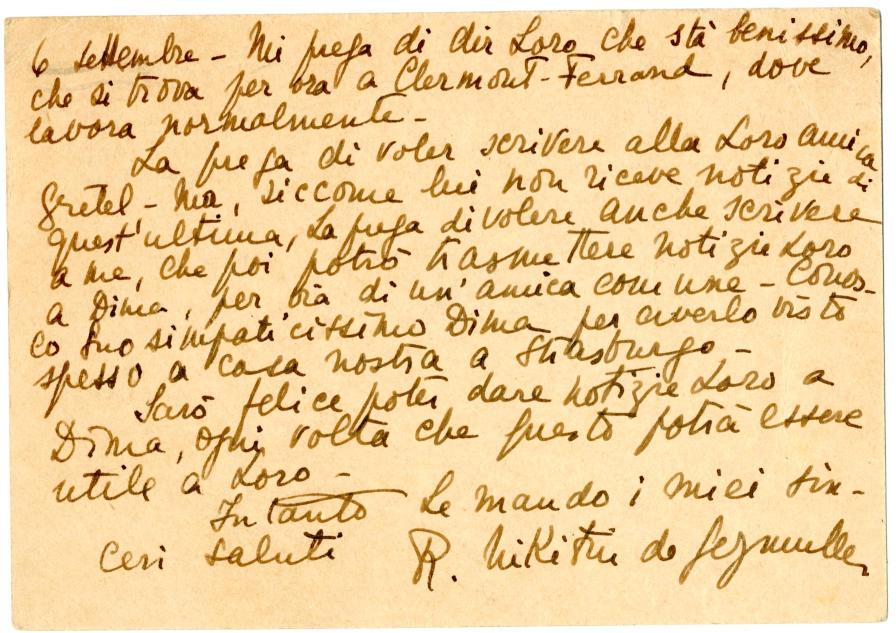 6 settembre - Mi prega di dir Loro che stà benissimo,
che si trova per ora a Clermont-Ferrand, dove
lavora normalmente -
La prega di voler scrivere alla Loro amica
Gretel - Ma, siccome lui non riceve notizie di
quest'ultima, La prega di volere anche scrivere
a me, che poi potrò trasmettere notizie Loro
a Dima, per via di un'amica comune - Conos-
co Suo simpaticissimo Dima per averlo visto
spesso a casa nostra a Strasburgo -
Sarò felice poter dare notizie Loro a
Dima, ogni volta che questo potrà essere
utile a Loro -
Intanto Le mando i miei sin-
ceri saluti R. Nikitin de Geymuller